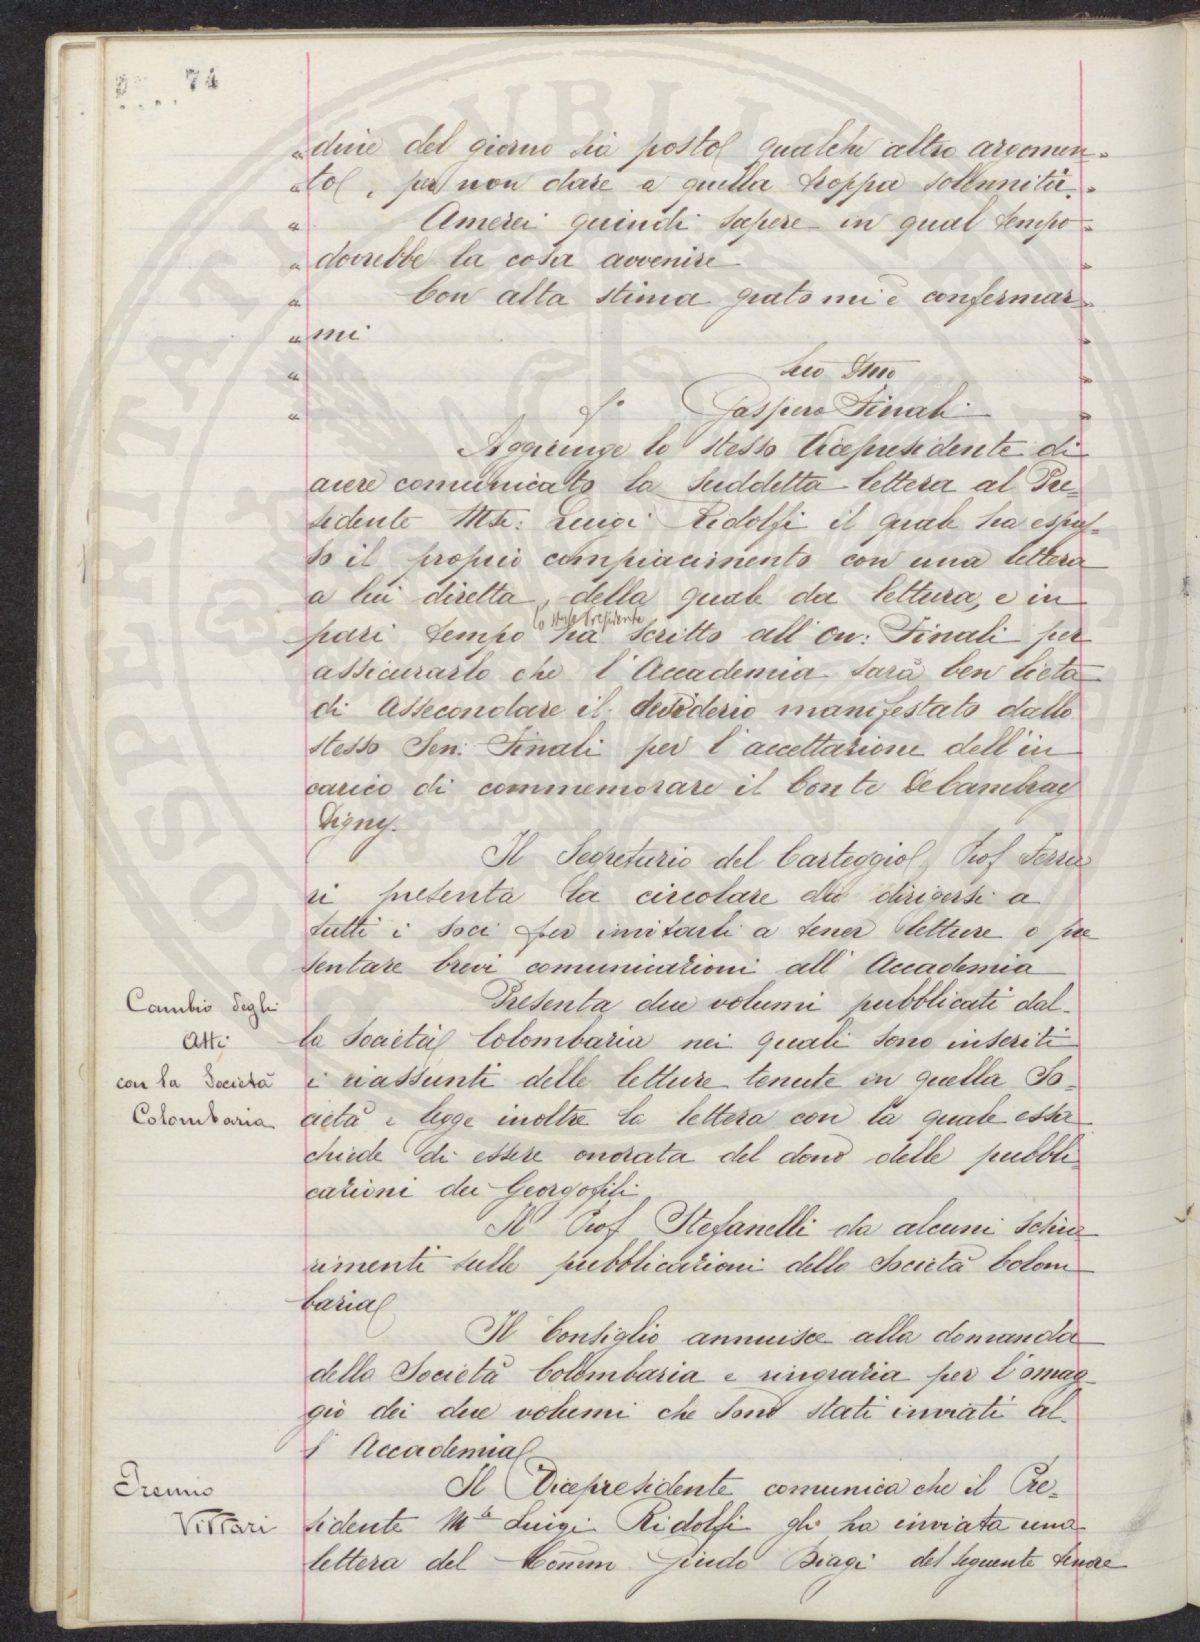 74
" dine del giorno sia posto qualche altro argomen- "
" to, per non dare a quella troppa solennità. "
" Amerei quindi sapere in qual tempo "
" dovrebbe la cosa avvenire "
" Con alta stima grato mi è confermar- "
" mi "
" Suo Dmo "
" f.° Gaspero Finali "
Aggiunge lo stesso Vicepresidente di
avere comunicato la suddetta lettera al Pre-
sidente Mse: Luigi Ridolfi il quale ha espres-
so il proprio compiacimento con una lettera
a lui diretta, della quale da lettura, e in
lo stesso Presidente
pari tempo ha scritto all'on: Finali per
assicurarlo che l'Accademia sarà ben lieta
di assecondare il desiderio manifestato dallo
stesso Sen: Finali per l'accettazione dell'in
carico di commemorare il Conte De Cambray
Digny.
Il Segretario del Carteggio Prof Ferra
ri presenta la circolare da dirigersi a
tutti i soci per invitarli a tener letture o pre
sentare brevi comunicazioni all'Accademia
Cambio degli
Atti
con la Società
Colombaria
Presenta due volumi pubblicati dal-
la Società Colombaria nei quali sono inseriti
i riassunti delle letture tenute in quella So-
cietà e legge inoltre la lettera con la quale essa
chiede di essere onorata del dono delle pubbli
cazioni dei Georgofili
Il Prof Stefanelli da alcuni schia
rimenti sulle pubblicazioni della Società Colom
baria
Il Consiglio annuisce alla domanda
della Società Colombaria e ringrazia per l'omag-
gio dei due volumi che sono stati inviati al-
l'Accademia
Premio
Villari
Il Vicepresidente comunica che il Pre-
sidente Mse Luigi Ridolfi gli ha inviata una
lettera del Comm Guido Biagi del seguente tenore